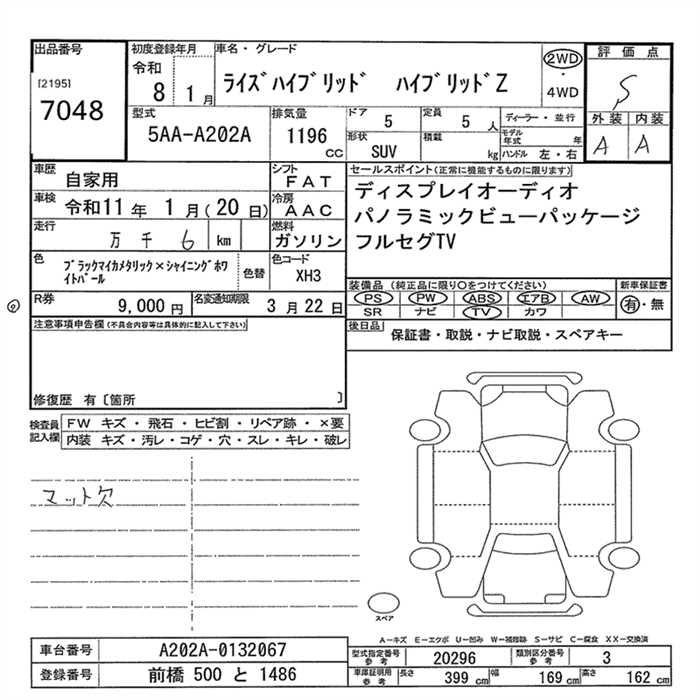 出品番号
[2195]
7048
初度登録年月
令和
8 1 月
車名・グレード
ライズハイブリッド ハイブリッドZ
2WD
・
4WD
評価点
S
外装 内装
A A
型式
5AA-A202A
排気量
1196
CC
ドア
5
定員
5 人
形状
SUV
積載
kg
ディーラー・並行
モデル年式 年
ハンドル 左・右
車歴
自家用
シフト
FAT
車検
令和11年 1月(20日)
冷房
AAC
走行
万 千 6 km
燃料
ガソリン
色
ブラックマイカメタリック×シャイニングホワイトパール
色替
色コード
XH3
セールスポイント(正常に機能するものに限ります)
ディスプレイオーディオ
パノラミックビューパッケージ
フルセグTV
装備品(純正品に限り○をつけてください)
PS PW ABS エアB AW
SR ナビ TV カワ
新車保証書
有・無
R券
9,000円
名変通知期限
3月22日
後日品
保証書・取説・ナビ取説・スペアキー
注意事項申告欄(不具合内容等は具体的に記入して下さい)
修復歴 有〔箇所 〕
検査員記入欄
FW キズ・飛石・ヒビ割・リペア跡・×要
内装 キズ・汚レ・コゲ・穴・スレ・キレ・破レ
マット欠
スペア
A−キズ E−エクボ U−凹み W−補修跡 S−サビ C−腐食 XX−交換済
車台番号
A202A-0132067
登録番号
前橋 500 と 1486
型式指定番号参考
20296
類別区分番号参考
3
車庫証明用参考
長さ 399 cm
幅 169 cm
高さ 162 cm